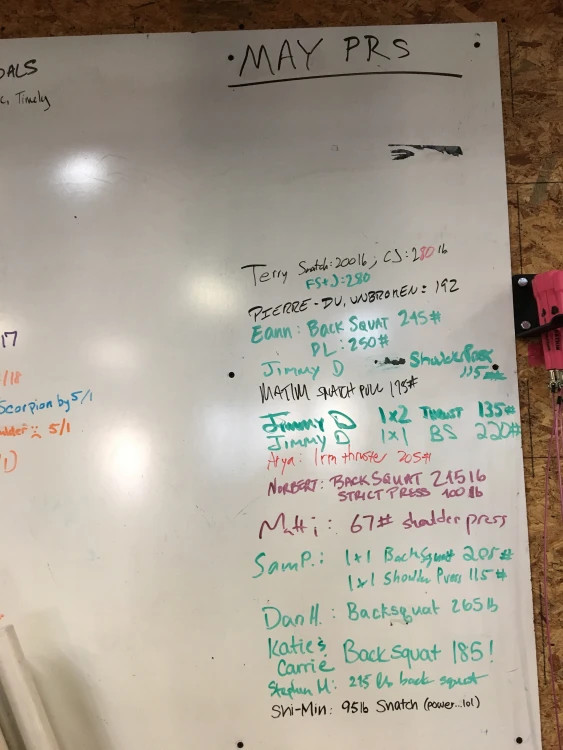 OALS
Timely
17
/18
Scorpion by 5/1
5/1
1)
MAY PRS
Terry Snatch: 200 lb; CJ: 280 lb
FS+J: 280
PIERRE-DU, UNBROKEN: 192
Eann: BACK SQUAT 245#
DL: 250#
Jimmy D Shoulder Press
115#
SNATCH PULL 175#
Jimmy D 1x2 THRUST 135#
Jimmy D 1x1 BS 220#
Arya: 1rm thruster 205#
NORBERT: BACK SQUAT 215 lb
STRICT PRESS 100 lb
Matti: 67# shoulder press
Sam P.: 1x1 BackSquat 205#
1x1 Shoulder Press 115#
Dan H.: Backsquat 265 lb
Katie &
Carrie Backsquat 185!
Stephen M: 215 lb back squat
Shi-Min: 95 lb Snatch (power...lol)